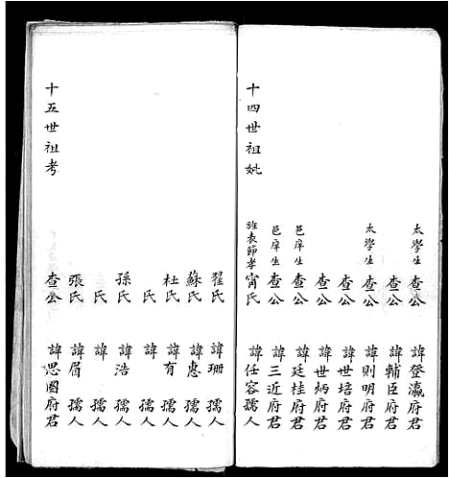 太學生 查公 諱登瀛府君
查公 諱輔臣府君
太學生 查公 諱則明府君
查公 諱世培府君
查公 諱世炳府君
邑庠生 查公 諱廷桂府君
邑庠生 查公 諱三近府君
十四世祖妣 旌表節孝 甯氏 諱任容孺人
翟氏 諱珊 孺人
蘇氏 諱惠 孺人
杜氏 諱有 孺人
氏 諱 孺人
孫氏 諱浩 孺人
氏 諱 孺人
張氏 諱眉 孺人
十五世祖考 查公 諱思國府君